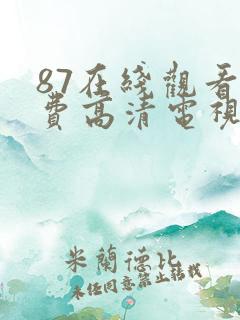 87在綫觀看
費高清電視
米蘭德比
未经同意禁止转载